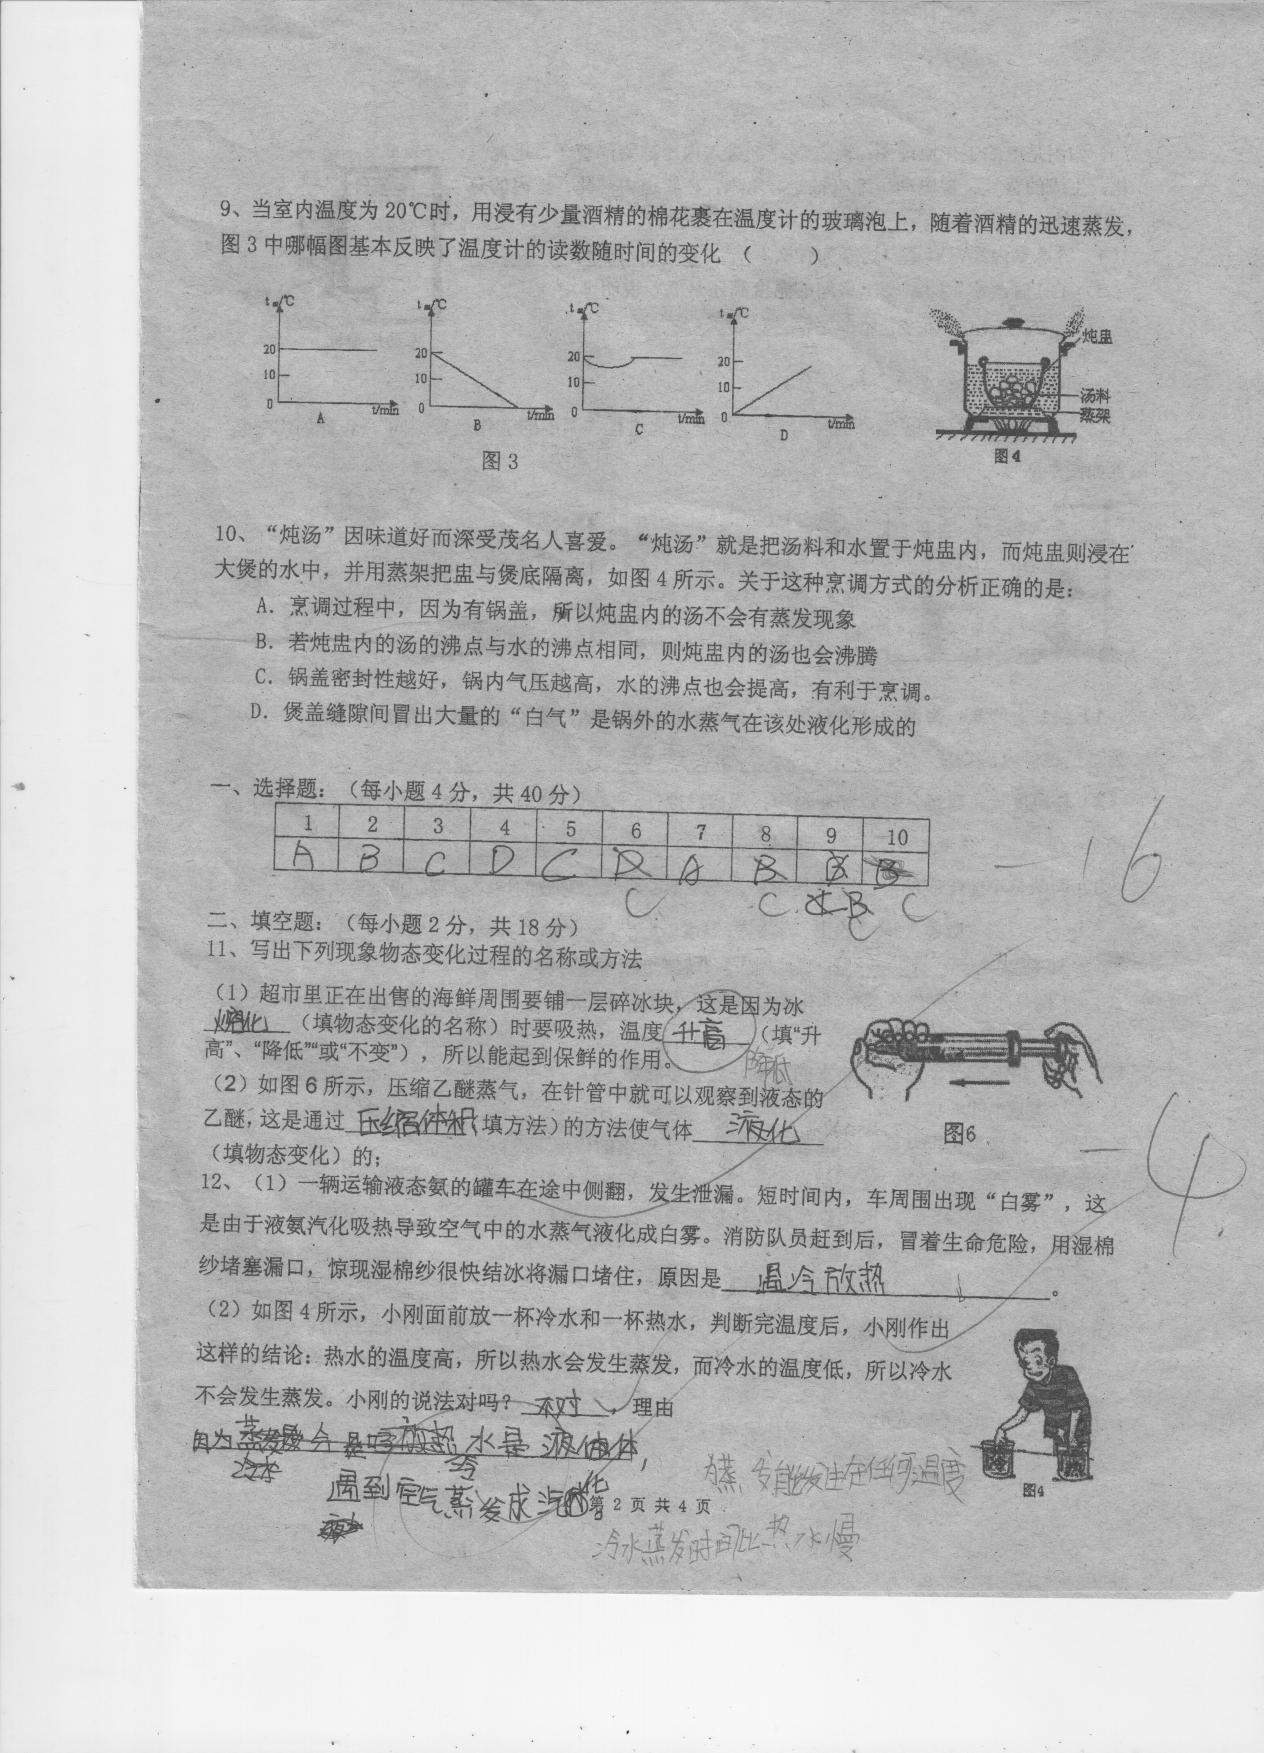 9、当室内温度为20℃时，用浸有少量酒精的棉花裹在温度计的玻璃泡上，随着酒精的迅速蒸发，
图3中哪幅图基本反映了温度计的读数随时间的变化 （ ）
t温/℃ t温/℃ t温/℃ t温/℃
20 20 20 20
10 10 10 10
0 0 0 0
t/min t/min t/min t/min
A B C D
图3
炖盅
汤料
蒸架
图4
10、“炖汤”因味道好而深受茂名人喜爱。“炖汤”就是把汤料和水置于炖盅内，而炖盅则浸在
大煲的水中，并用蒸架把盅与煲底隔离，如图4所示。关于这种烹调方式的分析正确的是：
A．烹调过程中，因为有锅盖，所以炖盅内的汤不会有蒸发现象
B．若炖盅内的汤的沸点与水的沸点相同，则炖盅内的汤也会沸腾
C．锅盖密封性越好，锅内气压越高，水的沸点也会提高，有利于烹调。
D．煲盖缝隙间冒出大量的“白气”是锅外的水蒸气在该处液化形成的
一、选择题：（每小题4分，共40分）
1 2 3 4 5 6 7 8 9 10
A B C D C D A B B B
C C C B C
C
-16
二、填空题：（每小题2分，共18分）
11、写出下列现象物态变化过程的名称或方法
（1）超市里正在出售的海鲜周围要铺一层碎冰块，这是因为冰
熔化（填物态变化的名称）时要吸热，温度升高（填“升
高”、“降低”“或“不变”），所以能起到保鲜的作用。
降低
（2）如图6所示，压缩乙醚蒸气，在针管中就可以观察到液态的
乙醚，这是通过压缩体积（填方法）的方法使气体液化
（填物态变化）的；
图6
-4
12、（1）一辆运输液态氨的罐车在途中侧翻，发生泄漏。短时间内，车周围出现“白雾”，这
是由于液氨汽化吸热导致空气中的水蒸气液化成白雾。消防队员赶到后，冒着生命危险，用湿棉
纱堵塞漏口，惊现湿棉纱很快结冰将漏口堵住，原因是遇冷放热。
（2）如图4所示，小刚面前放一杯冷水和一杯热水，判断完温度后，小刚作出
这样的结论：热水的温度高，所以热水会发生蒸发，而冷水的温度低，所以冷水
不会发生蒸发。小刚的说法对吗？不对，理由
因为蒸发 放热 水是液体，
遇到空气蒸发成汽化。
图4
蒸发能发生在任何温度
第 2 页 共 4 页
冷水蒸发时间比热水慢